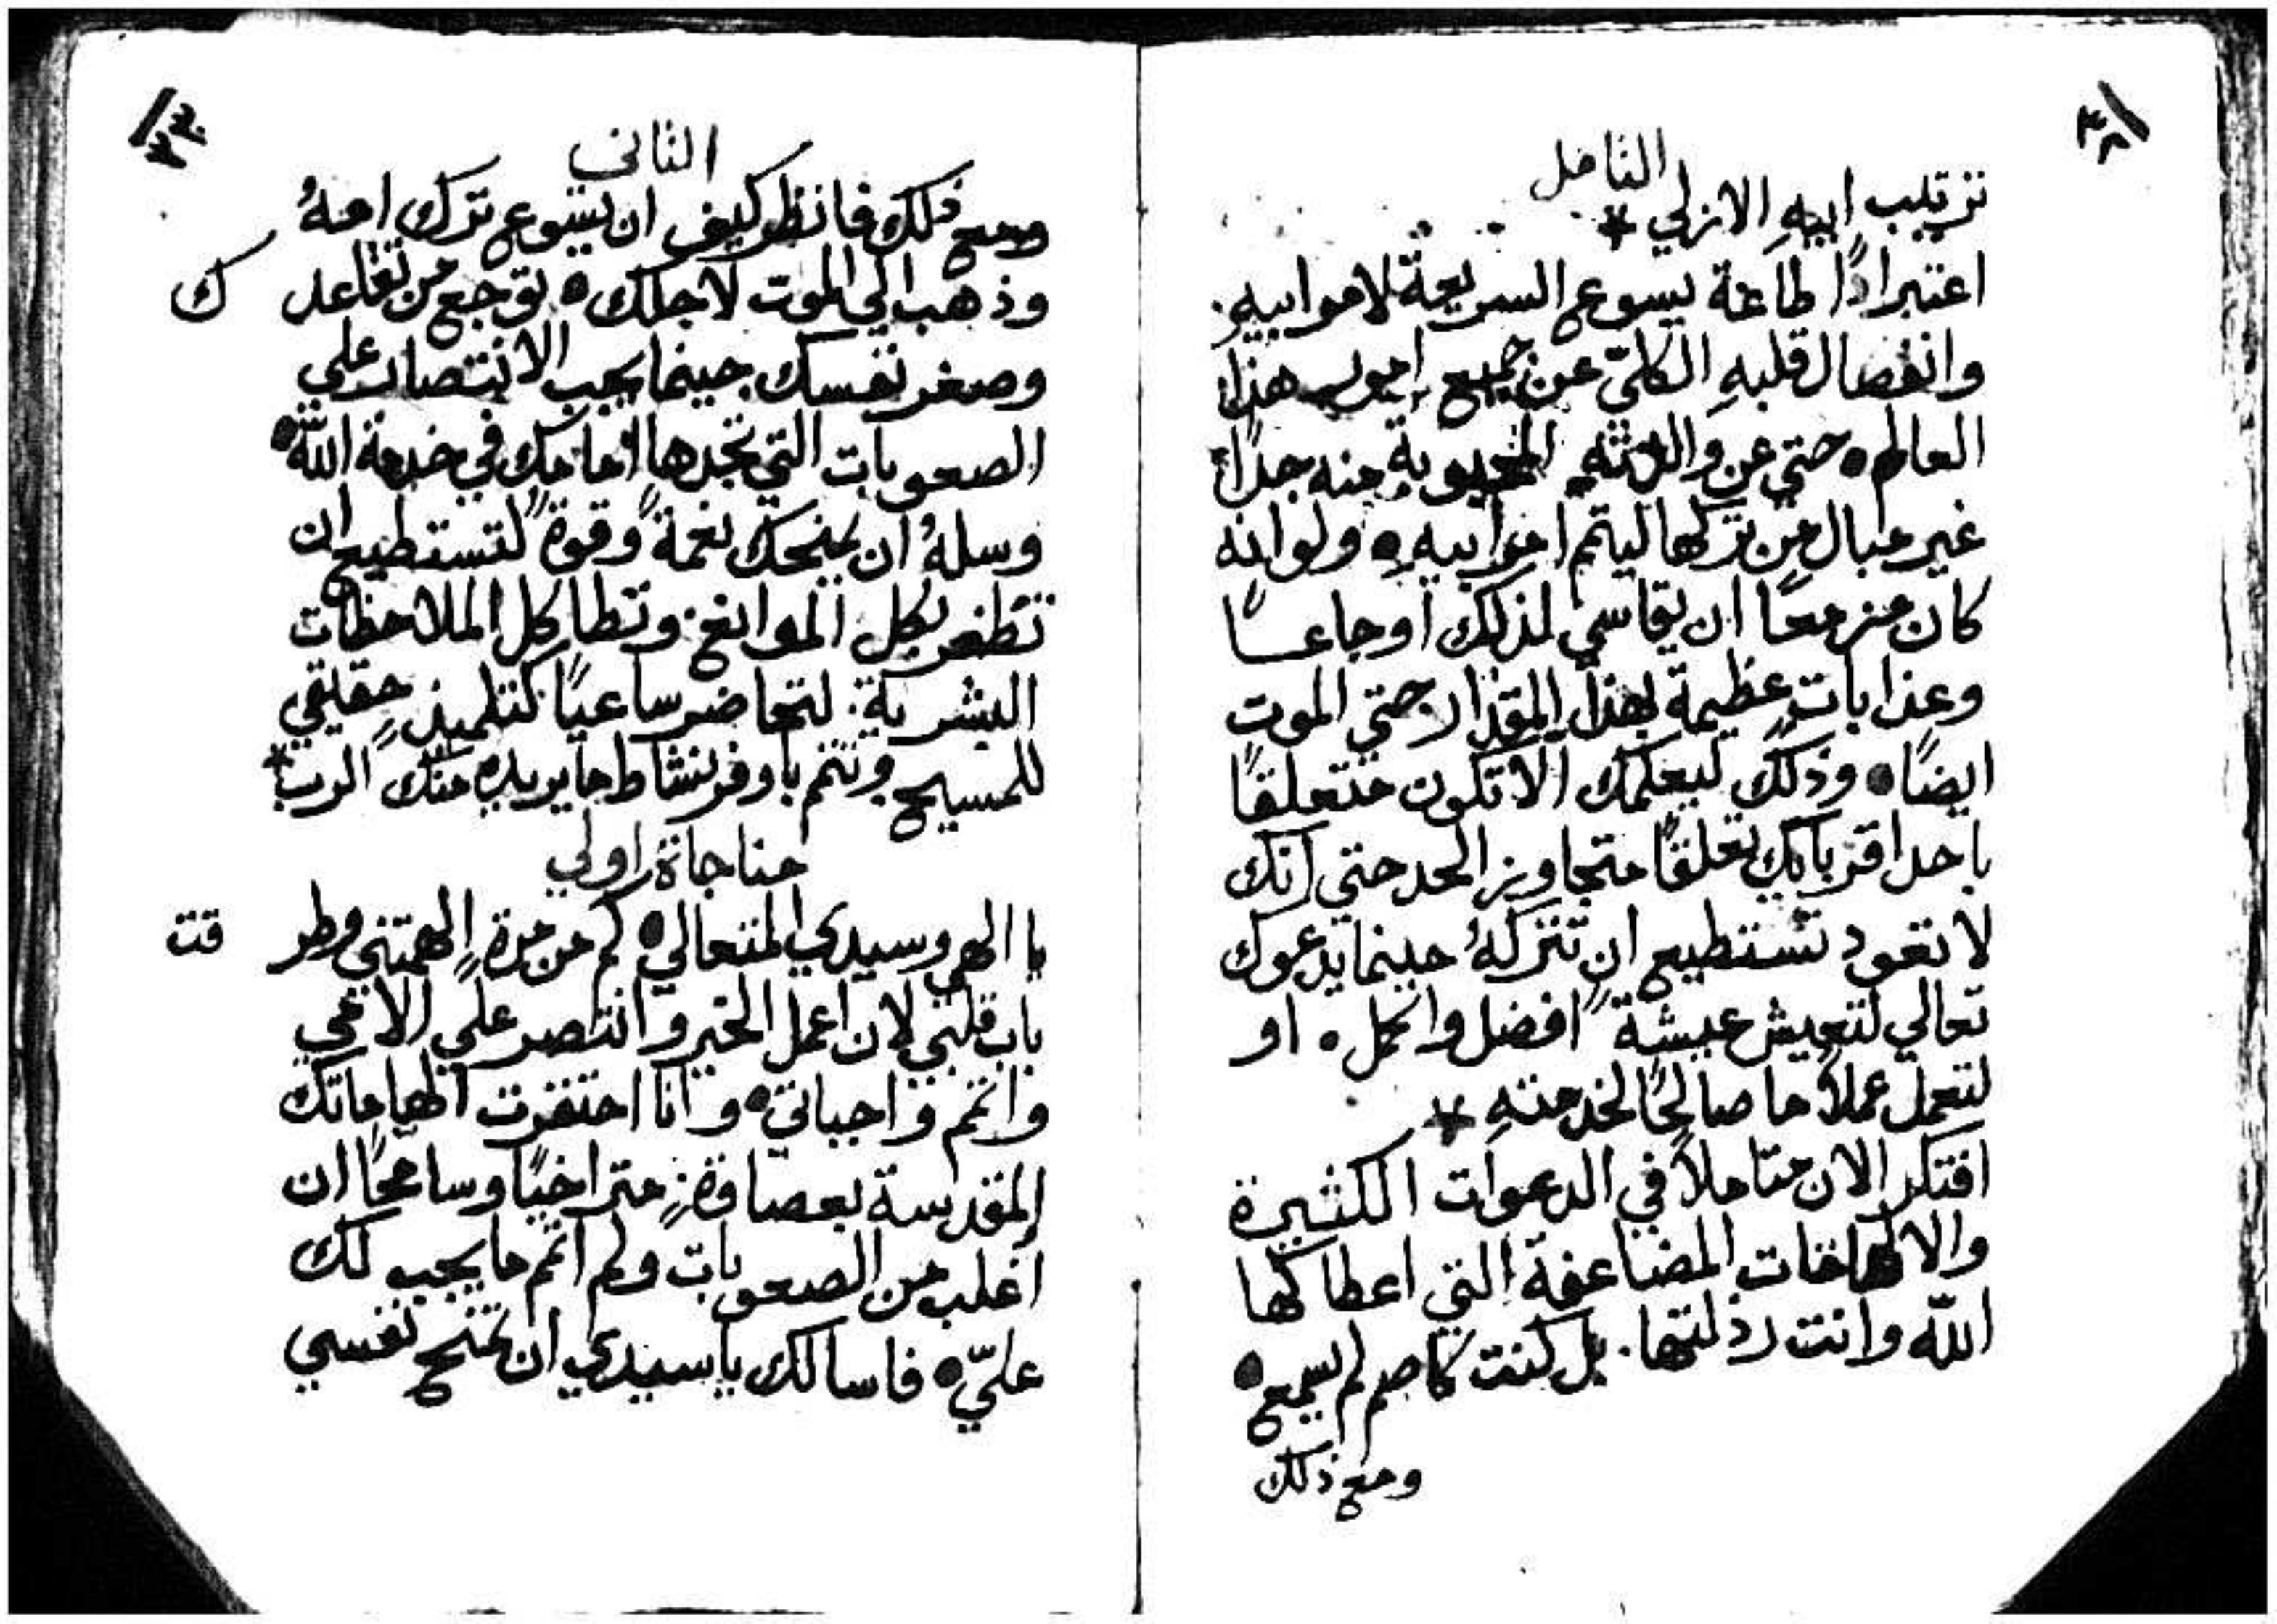 التامل
ترتيب ابيهِ الازلي *
اعتبر اذًا طاعة يسوع السريعة لامر ابيهِ.
وانفصال قلبهِ الكليّ عن جميع امور هذا
العالم ٥ حتي عن والدتهِ المحبوبة منه جدًا
غير مبالٍ من تركها ليتم امر ابيهِ ٥ ولو انه
كان مزمعًا ان يقاسي لذلك اوجاعًا
وعذاباتٍ عظيمة بهذا المقدار حتي الموت
ايضًا ٥ وذلك ليعلمك الا تكون متعلقًا
باحد اقربايك تعلقًا متجاوز الحد حتي انك
لا تعود تستطيع ان تتركهُ حينما يدعوك
تعالي لتعيش عيشةً افضل واكمل ٥ او
لتعمل عملاً ما صالحًا لخدمتهِ *
افتكر الان متاملاً في الدعوات الكثيرة
والالهامات المضاعفة التي اعطاكها
اللّه وانت رذلتها. بل كنت كاصم لم يسمع ٥
ومع ذلك
الثاني
ومع ذلك فانظر كيف ان يسوع ترك امهُ
وذهب الي الموت لاجلك ٥ توجع من تقاعد ك
وصغر نفسك حينما يجب الانتصار علي
الصعوبات التي تجدها امامك في خدمة اللّه ٥
وسلهُ ان يمنحك نعمةً وقوةً لتستطيع ان
تظفر بكل الموانع. وتطا كل الملاحظات
البشرية. لتحاضر ساعيًا كتلميذٍ حقيقي
للمسيح وتتم باوفر نشاط ما يريده منك الرب *
مناجاة اولي
يا الهي وسيدي المتعالي ٥ كم من مرةٍ الهمتني وطر قت
باب قلبي لان اعمل الخير وانتصر علي الامي
واتمم واجباتي ٥ وانا احتقرت الهاماتك
المقدسة بعصاوةٍ. متراخيًا وسامحًا ان
اغلب من الصعوبات ولم اتمم ما يجب لك
عليّ ٥ فاسالك يا سيدي ان تمنح نفسي